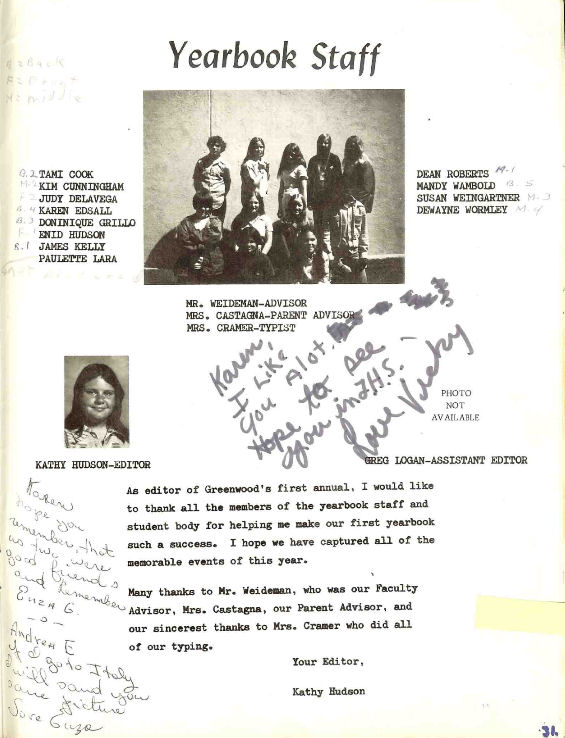 Yearbook Staff
B = Back
M = middle
B. 2 TAMI COOK
KIM CUNNINGHAM
JUDY DELAVEGA
B. 4 KAREN EDSALL
B. 3 DONINIQUE GRILLO
ENID HUDSON
B. 1 JAMES KELLY
PAULETTE LARA
DEAN ROBERTS M-1
MANDY WAMBOLD B. 5
SUSAN WEINGARTNER M-3
DEWAYNE WORMLEY M-4
MR. WEIDEMAN-ADVISOR
MRS. CASTAGNA-PARENT ADVISOR
MRS. CRAMER-TYPIST
Karen,
I Like
you Alot.
Hope to see
you in J.H.S. -
Love Vicky
PHOTO
NOT
AVAILABLE
KATHY HUDSON-EDITOR
GREG LOGAN-ASSISTANT EDITOR
As editor of Greenwood's first annual, I would like
to thank all the members of the yearbook staff and
student body for helping me make our first yearbook
such a success. I hope we have captured all of the
memorable events of this year.
Many thanks to Mr. Weideman, who was our Faculty
Advisor, Mrs. Castagna, our Parent Advisor, and
our sincerest thanks to Mrs. Cramer who did all
of our typing.
Your Editor,
Kathy Hudson
Karen
hope you
remember that
us two were
good friends
and remember
Enza G.
-o-
Andrea E
If I go to Italy
I will sand you
some picture
Love Enza
31.